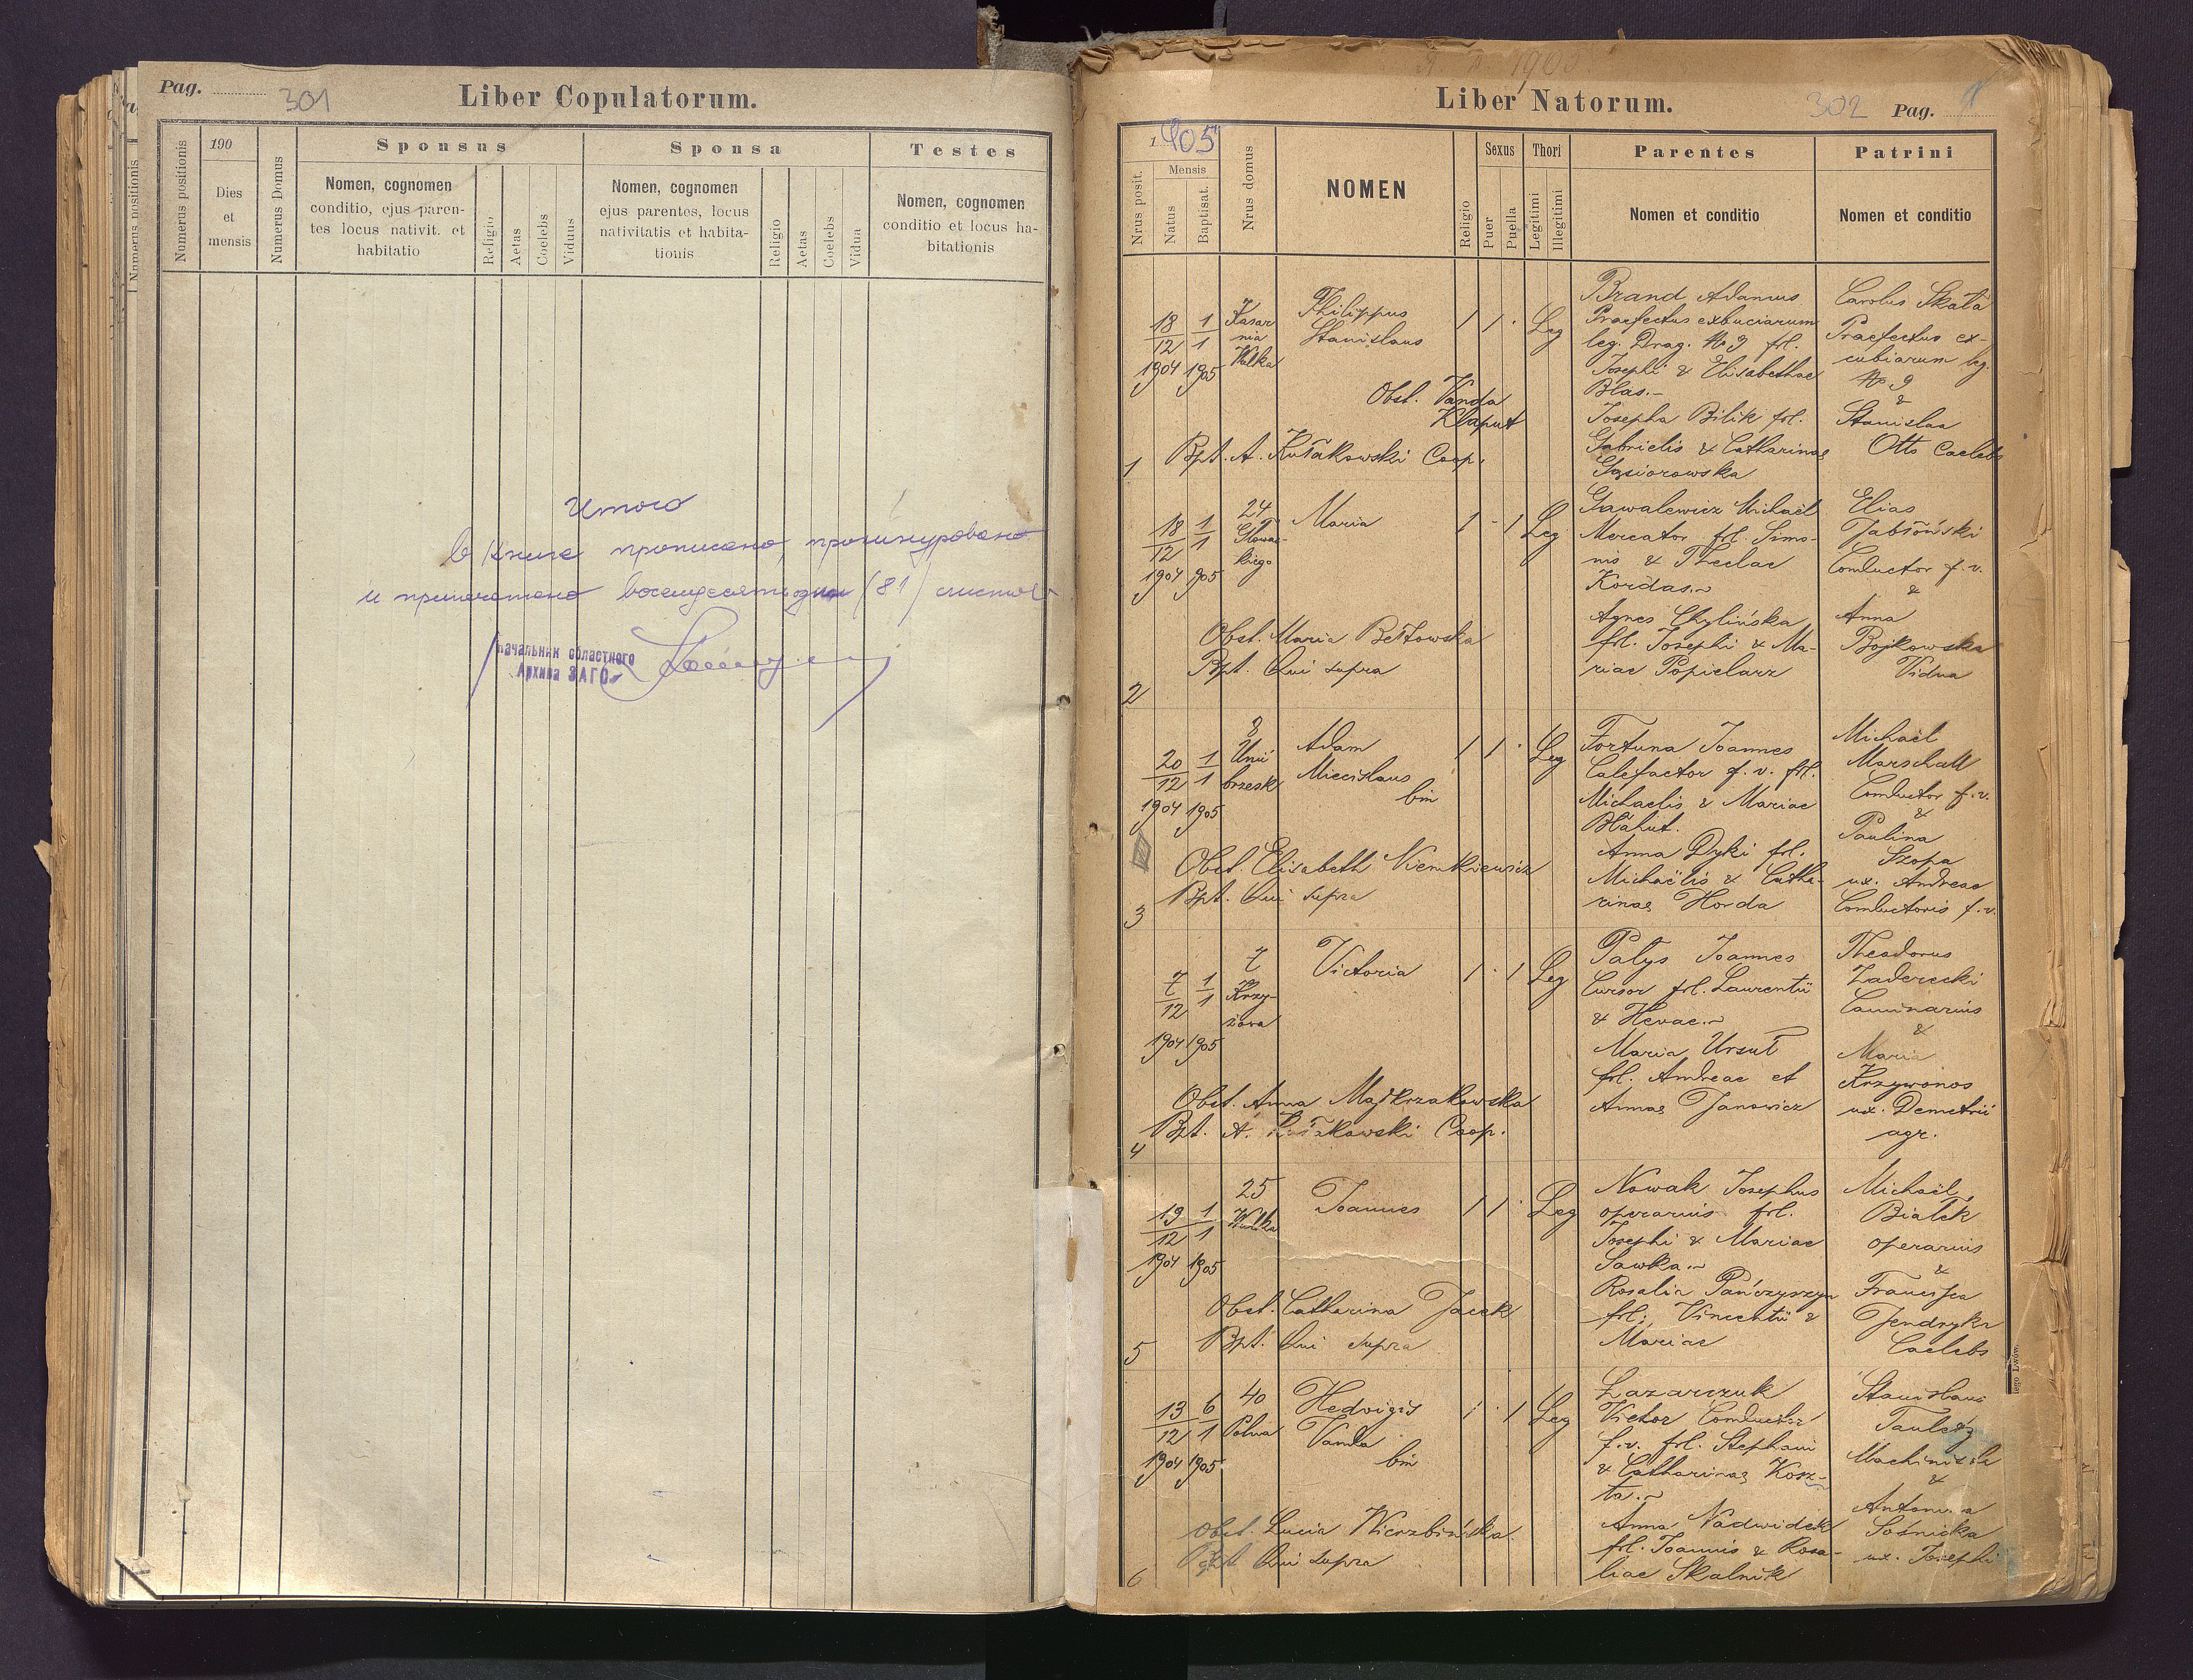 Pag.
301
Liber Copulatorum.
Numerus positionis
190
Dies
et
mensis
Numerus Domus
Sponsus
Nomen, cognomen
conditio, ejus paren-
tes locus nativit. et
habitatio
Religio
Aetas
Coelebs
Viduus
Sponsa
Nomen, cognomen
ejus parentes, locus
nativitatis et habita-
tionis
Religio
Aetas
Coelebs
Vidua
Testes
Nomen, cognomen
conditio et locus ha-
bitationis
Итого
в книге прописано, прошнуровано
и припечатано восемьдесят один (81) листов
Начальник областного
Архива ЗАГС
Liber Natorum.
302
Pag.
1905
Nrus posit.
Mensis
Natus
Baptisat.
Nrus domus
NOMEN
Religio
Sexus
Puer
Puella
Thori
Legitimi
Illegitimi
Parentes
Nomen et conditio
Patrini
Nomen et conditio
1
18 1
12 1
1904 1905
Kasar
nia
Wulka
Philippus
Stanislaus
1 1 Leg
Obst. Vanda
Kłaput
Bpt. A. Kułakowski Coop.
Brand Adamus
Praefectus exbuciarum
leg. Drag. No 9 frl.
Josephi & Elisabethae
Blas.
Josepha Bilik frl.
Gabrielis & Catharinae
Gąsiorowska
Carolus Skała
Praefectus ex-
cubiarum leg.
No 9
&
Stanislaa
Otto Caelebs
2
18 1
12 1
1904 1905
24
Słowac-
kiego
Maria
1 - 1 Leg
Obst. Maria Bełtowska
Bpt. Qui supra
Gawalewicz Michaël
Mercator frl. Simo-
nis & Theclae
Kordas.
Agnes Chylińska
frl. Josephi & Ma-
riae Popielarz
Elias
Jabłoński
Conductor f. v.
&
Anna
Bojkowska
Vidua
3
20 1
12 1
1904 1905
8
Unii
brzesk
Adam
Miecislaus
bin
1 1 Leg
Obst. Elisabeth Niemkiewicz
Bpt. Qui supra
Fortuna Joannes
Calefactor f. v. frl.
Michaelis & Mariae
Błahut.
Anna Dyki frl.
Michaëlis & Catha-
rinae Horda
Michaël
Marschall
Conductor f. v.
&
Paulina
Szopa
ux. Andreae
Conductoris f. v.
4
7 1
12 1
1904 1905
7
Krzy-
żowa
Victoria
1 1 Leg
Obst. Anna Majkrzakowska
Bpt. A. Coop.
Patys Joannes
Cursor frl. Laurentii
& Hevae.
Maria Ursuł
frl. Andreae et
Annae Janowicz
Theodorus
Zaderecki
Caminarius
&
Maria
Krzywonos
ux. Demetrii
agr.
5
19 1
12 1
1904 1905
25
Wulka
Joannes
1 1 Leg
Obst. Catharina Jacek
Bpt. Qui supra
Nowak Josephus
operarius frl.
Josephi & Mariae
Sawka.
Rosalia Pańczyszyn
frl. Vincentii &
Mariae
Michaël
Białek
operarius
&
Francisca
Jendryka
Caelebs
6
13 6
12 1
1904 1905
40
Polna
Hedvigis
Vanda
bin
1 1 Leg
Obst. Lucia Wierzbińska
Bpt. Qui supra
Łazarczuk
Victor Conductor
f. v. frl. Stephani
& Catharinae Kosz-
ta.
Anna Nadwidek
frl. Joannis & Rosa-
liae Skalnik
Stanislaus
Machinista
&
Antonina
Sośnicka
ux. Josephi